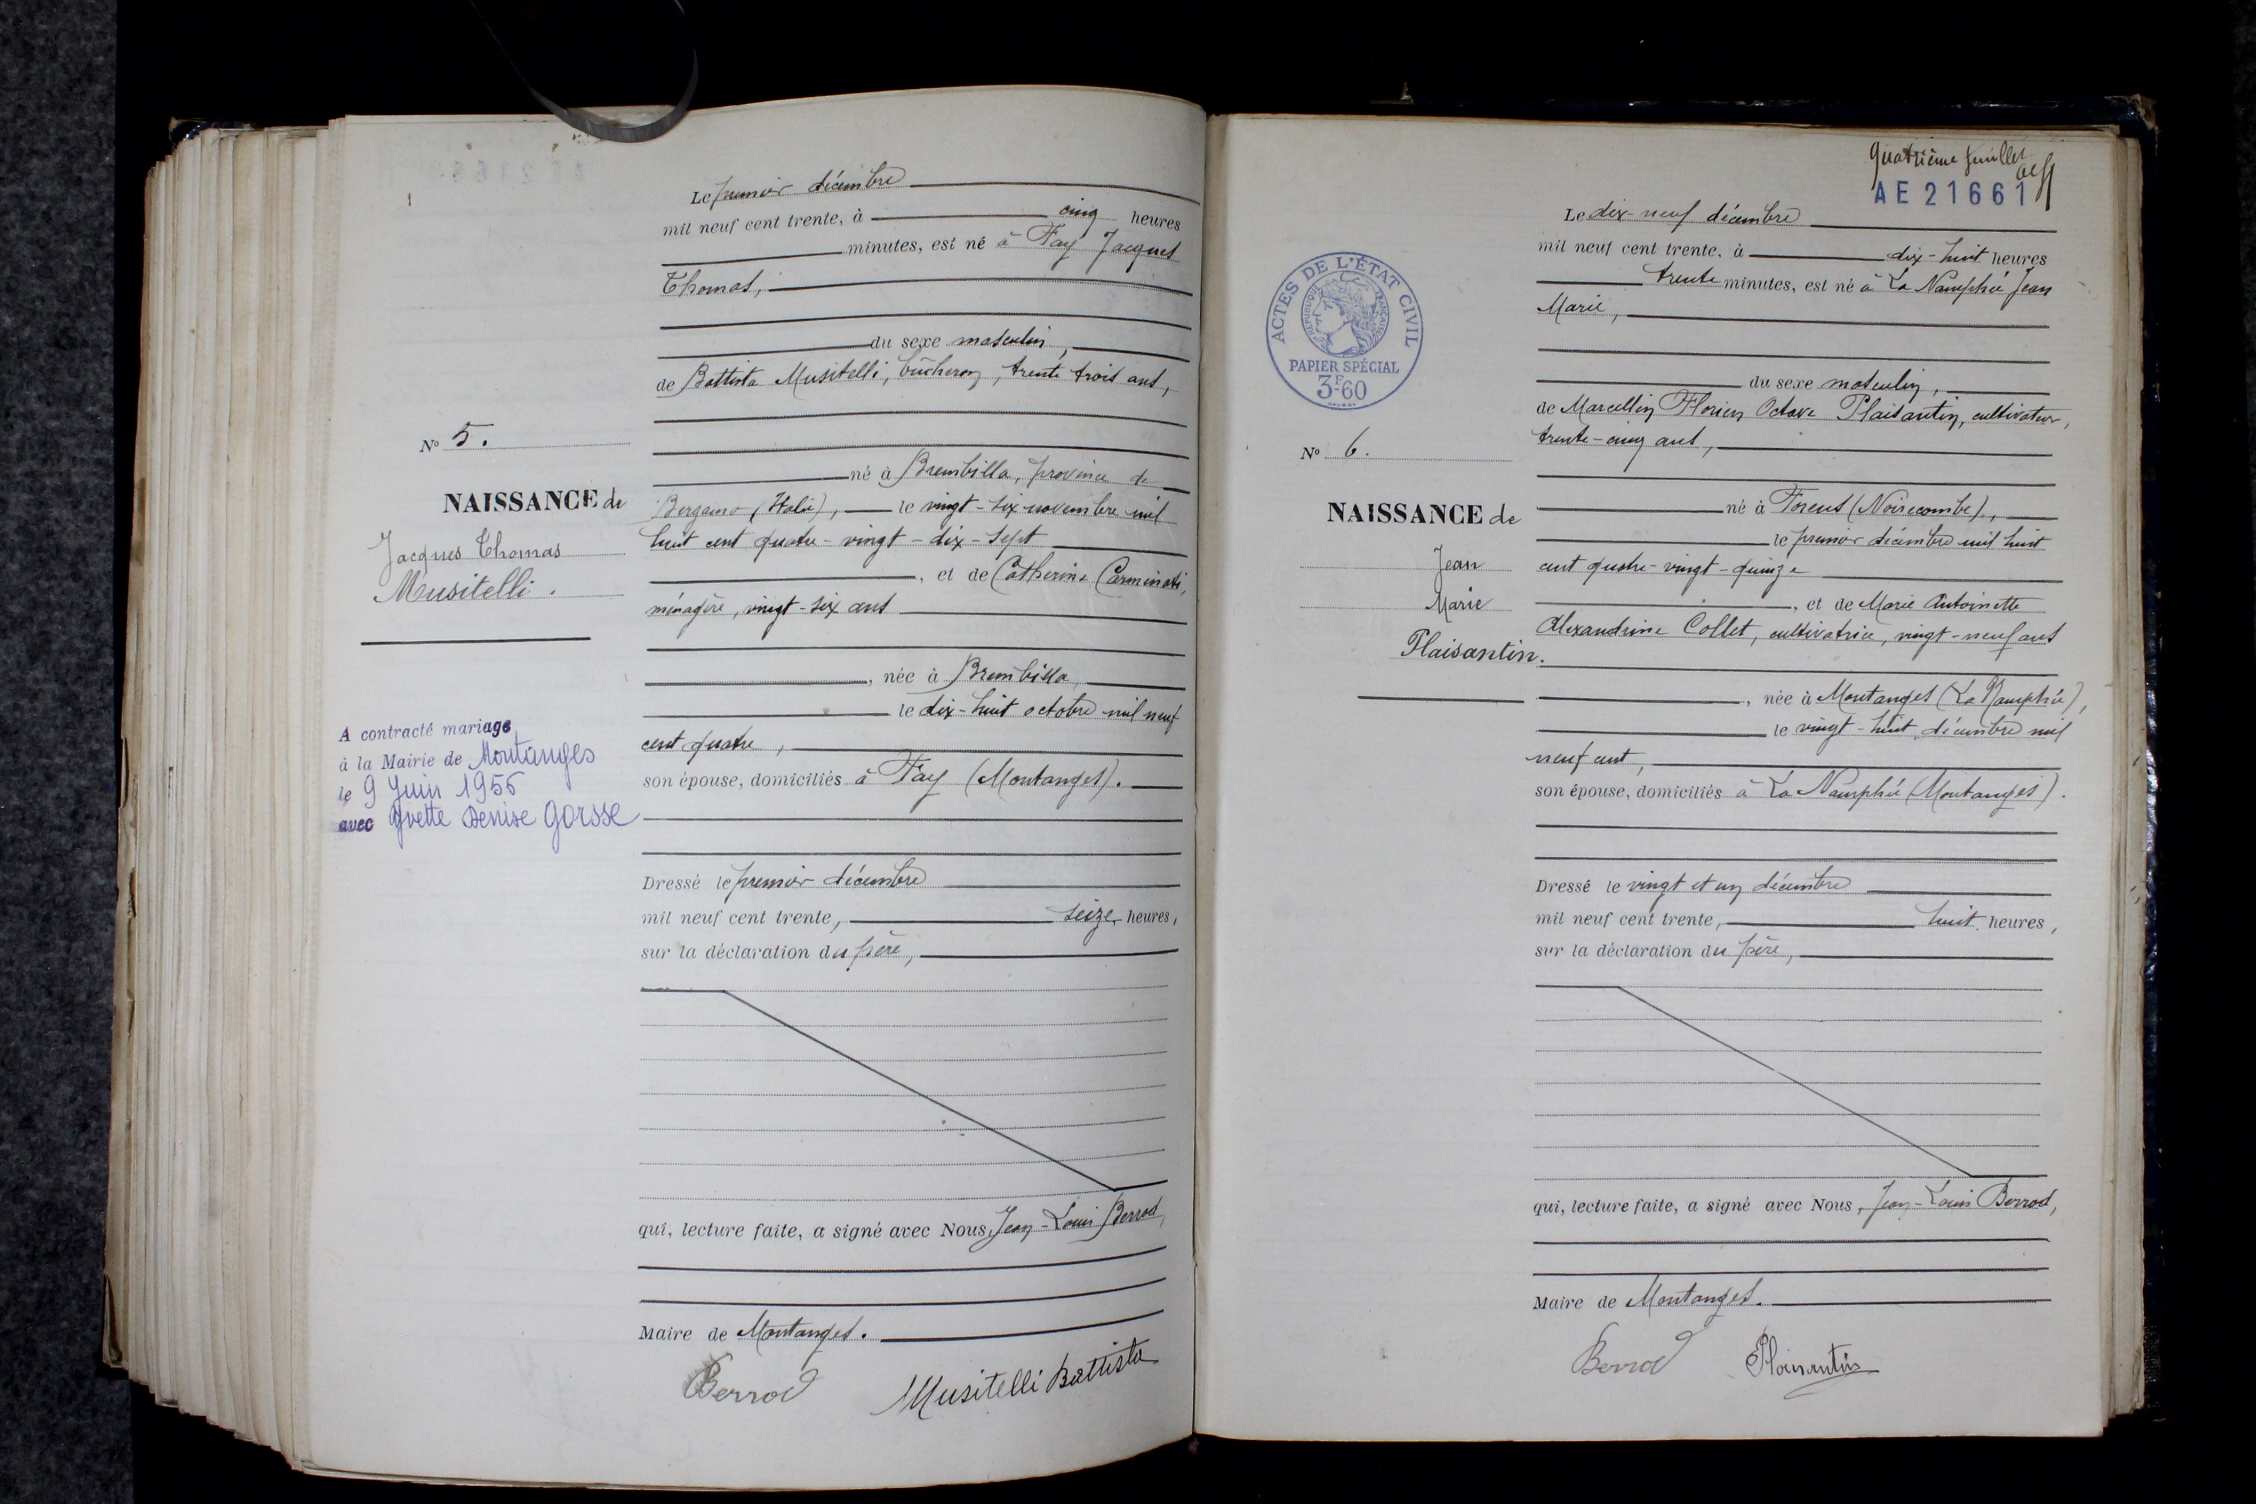 Le premier décembre
mil neuf cent trente, à cinq heures
minutes, est né à Fay Jacques
Thomas,
du sexe masculin,
de Battista Musitelli, bûcheron, trente trois ans,
né à Brembilla, province de
Bergamo (Italie), le vingt-six novembre mil
huit cent quatre-vingt-dix-sept
, et de Catherine Carminati,
ménagère, vingt-six ans
, née à Brembilla,
le dix-huit octobre mil neuf
cent quatre,
son épouse, domiciliés à Fay (Montanges).
Dressé le premier décembre
mil neuf cent trente, seize heures,
sur la déclaration du père,
qui, lecture faite, a signé avec Nous, Jean-Louis Berrod,
Maire de Montanges.
Berrod Musitelli Battista
No 5.
NAISSANCE de
Jacques Thomas
Musitelli.
A contracté mariage
à la Mairie de Montanges
le 9 Juin 1956
avec Yvette Denise Gorsse
Quatrième feuillet
AE 21661
Le dix-neuf décembre
mil neuf cent trente, à dix-huit heures
trente minutes, est né à La Namphée Jean
Marie,
du sexe masculin,
de Marcellin Florien Octave Plaisantin, cultivateur,
trente-cinq ans,
né à Forens (Noirecombe),
le premier décembre mil huit
cent quatre-vingt-quinze
, et de Marie Antoinette
Alexandrine Collet, cultivatrice, vingt-neuf ans
, née à Montanges (La Namphée),
le vingt-huit décembre mil
neuf cent,
son épouse, domiciliés à La Namphée (Montanges).
Dressé le vingt et un décembre
mil neuf cent trente, huit heures,
sur la déclaration du père,
qui, lecture faite, a signé avec Nous, Jean-Louis Berrod,
Maire de Montanges.
Berrod Plaisantin
ACTES DE L'ÉTAT CIVIL
RÉPUBLIQUE FRANÇAISE
PAPIER SPÉCIAL
3F60
No 6.
NAISSANCE de
Jean
Marie
Plaisantin.